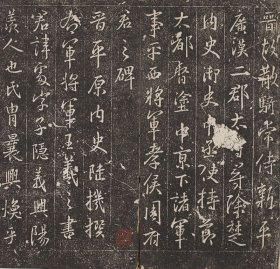 晉故散騎常侍新平
廣漢二郡太守尋除楚
內史御史中丞使持節
大都督塗中京下諸軍
事平西將軍孝侯周府
君之碑
晉平原內史陸機撰
右軍將軍王羲之書
君諱處字子隱義興陽
羨人也氏胄曩興煥乎